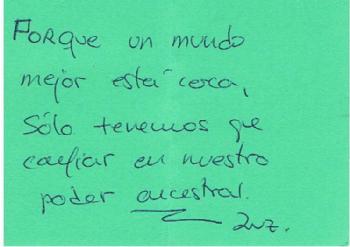 Porque un mundo
mejor está cerca,
Sólo tenemos que
confiar en nuestro
poder ancestral.
Luz.